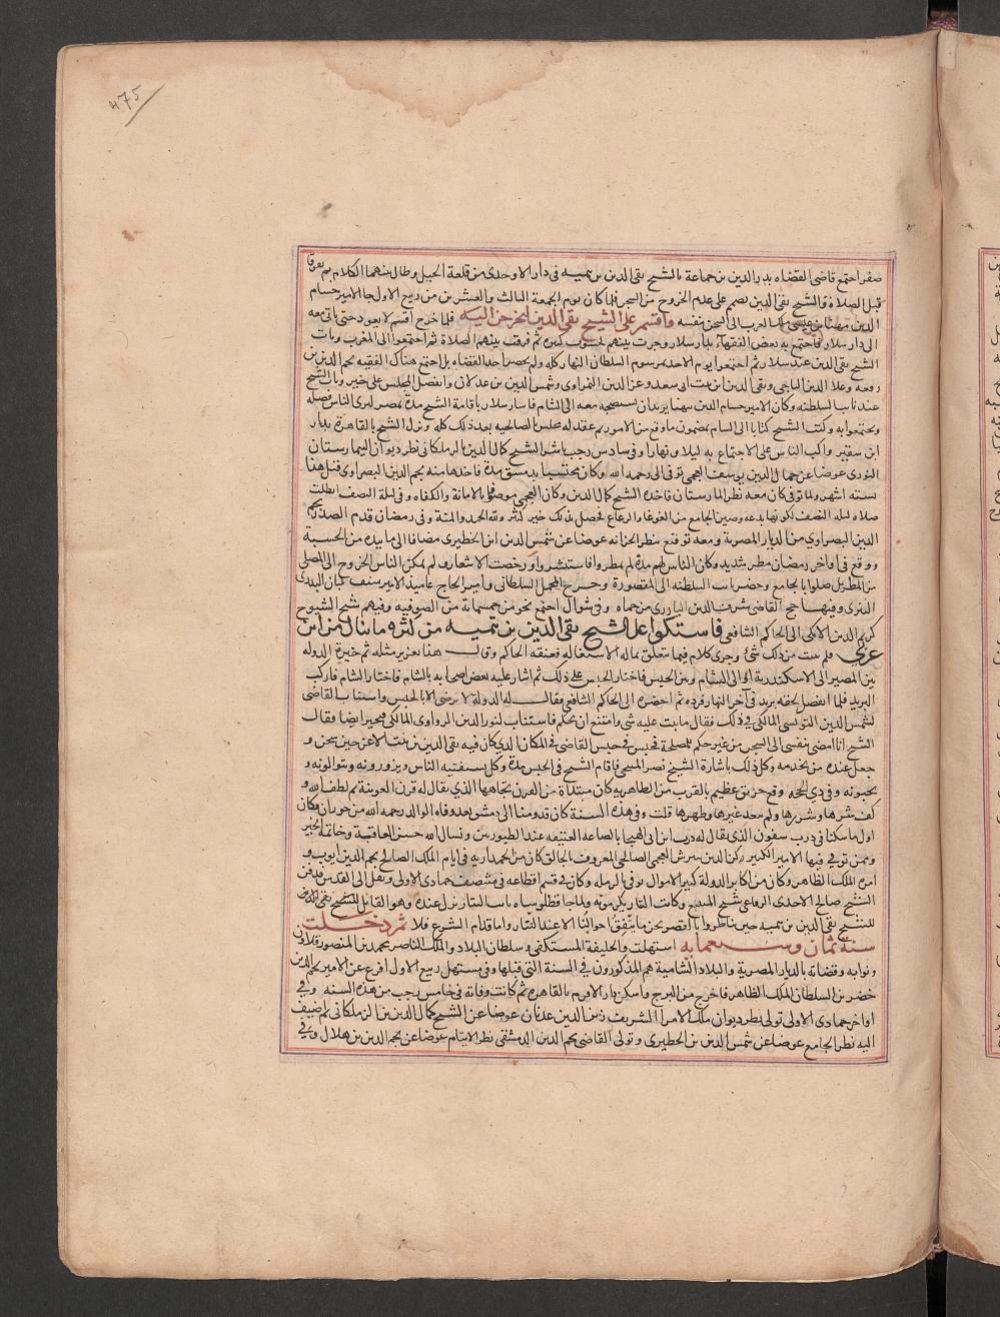 ٤٧٥
صفر اجتمع قاضى القضاه بدر الدين بن جماعة بالشيخ تقى الدين بن تيميه فى دار الاوحدى من قلعة الجبل وطال بينهما الكلام ثم تفرقا
قبل الصلاة والشيخ تقى الدين مصمم على عدم الخروج من السجن فلما كان يوم الجمعة الثالث والعشرين من ربيع الاول جا الامير حسام
الدين مهنا بن عيسى ملك العرب الى السجن بنفسه واقسم على الشيخ تقى الدين ليخرجن اليه فلما خرج اقسم لا يعود حتى ياتى معه
الى دار سلار فاجتمع به بعض الفقهاء بدار سلار وجرت بينهم بحوث كثيره ثم فرقت بينهم الصلاة ثم اجتمعوا الى المغرب وبات
الشيخ تقى الدين عند سلار ثم اجتمعوا يوم الاحد بمرسوم السلطان النهار كله ولم يحضر احد القضاه بل اجتمع هناك الفقيه نجم الدين بن
رفعه وعلا الدين الباجى وتقى الدين ابن بنت ابى سعد وعز الدين النمراوى وشمس الدين بن عدلان وانفصل المجلس على خير وبات الشيخ
عند نائب السلطنه وكان الامير حسام الدين مهنا يريد ان يستصحبه معه الى الشام فاشار سلار باقامة الشيخ مدة بمصر ليرى الناس فضله
ويجتمعوا به وكتب الشيخ كتابا الى الشام يتضمن ما وقع من الامور ثم عقد له مجلس بالصالحيه بعد ذلك كله ونزل الشيخ بالقاهرة بدار
ابن شقير واكب الناس على الاجتماع به ليلا ونهارا وفى سادس رجب باشر الشيخ كمال الدين بن الزملكانى نظر ديوان البيمارستان
النورى عوضا عن جمال الدين يوسف العجمى توفى الى رحمه الله وكان محتسبا بدمشق مدة فاخذها منه نجم الدين البصراوى قبل هذا
بسته اشهر ولما توفى كان معه نظر المارستان فاخذه الشيخ كمال الدين وكان العجمى موصوفا بالامانة والكفاه وفى ليلة النصف ابطلت
صلاه ليله النصف لكونها بدعه وصين الجامع من الغوغا والرعاع فحصل بذلك خير كثير ولله الحمد والمنة وفى رمضان قدم الصدر نجم
الدين البصراوى من الديار المصرية ومعه توقيع بنظر الخزانه عوضا عن شمس الدين ابن الخطيرى مضافا الى ما بيده من الحسبة
ووقع فى اواخر رمضان مطر شديد وكان الناس لهم مدة لم يمطروا فاستبشروا ورخصت الاسعار ولم يمكن الناس الخروج الى المصلى
من المطر بل صلوا بالجامع وحضر نائب السلطنه الى المقصورة وخرج المحمل السلطانى وامير الحاج عاميذ الامير سيف بلبان البدرى
التترى وفيها حج القاضى شرف الدين البارزى من حماه وفى شوال اجتمع نحو من خمسمائة من الصوفيه وفيهم شيخ الشيوخ
كريم الدين الاملى الى الحاكم الشافعى فاستكوا على الشيخ تقى الدين بن تيميه من كثره ما ينال من ابن
عربى فلم يثبت من ذلك شئ وجرى كلام فيما يتعلق بماله الاستغاثه فعنفه الحاكم وقال هذا تعزير مثله ثم خيرة الدوله
بين المصير الى الاسكندرية او الى الشام وبين الحبس فاختار الحبس على ذلك ثم اشار عليه بعض اصحابه بالشام فاختار الشام فاركب
البريد فلما انفصل لحقه بريد فى آخر النهار فرده ثم احضره الى الحاكم الشافعى فقال له الدولة لا ترضى الا بالحبس واستناب القاضى
لشمس الدين التونسى المالكى فى ذلك فقال ما ثبت عليه شى وامتنع ان يحكم فاستناب لنور الدين الزواوى المالكى فتحير ايضا وقال
الشيخ انا امضى بنفسى الى السجن من غير حكم للمصلحة فحبس فى حبس القاضى فى المكان الذى كان فيه تقى الدين بن بنت الاعز حين سجن و
جعل عنده من يخدمه وكل ذلك باشارة الشيخ نصر المنبجى فاقام الشيخ فى الحبس مدة وكل يستفتيه الناس ويزورونه ويتوالونه و
يحبونه وفى ذى الحجه وقع حريق عظيم بالقرب من الظاهريه كان مبتداه من الفرن تجاهها الذى يقال له فرن العوينة ثم لطف الله و
كف شرها وشررها ولم يعد غيرها وطهرها قلت وفى هذه السنة كان قدومنا الى دمشق بعد وفاه الوالد رحمه الله من حوران وكان
اول ما سكنا فى درب سفون الذى يقال له درب ابن ابى الهيجا بالصاغه العتيقه عند الطيوريين ونسال الله حسن العاقبة وخاتمة الخير
وممن توفى فيها الامير الكبير ركن الدين بيبرس العجمى الصالحى المعروف بالجالق كان من الجمداريه فى ايام الملك الصالح نجم الدين ايوب و
امره الملك الظاهر وكان من اكابر الدولة كثير الاموال توفى بالرمله وكان فى قسم اقطاعه فى منتصف جمادى الاولى ونقل الى القدس فدفن
الشيخ صالح الاحدى الرفاعى شيخ المنيبع وكانت التتار يكرمونه ولما جا قطلو شاه نائب التتار نزل عنده وهو القائل للشيخ تقى الدين
للشيخ تقى الدين بن تيميه حين ناظروا بالقصر نحن ما ينفق احوالنا الا عند التتار واما قدام الشرع فلا ثم دخلت
سنة ثمان وسبعمايه استهلت والخليفة المستكفى وسلطان البلاد والملك الناصر محمد بن المنصور قلاون
ونوابه وقضاته بالديار المصرية والبلاد الشامية هم المذكورون فى السنة التى قبلها وفى مستهل ربيع الاول افرج عن الامير نجم الدين
خضر بن السلطان الملك الظاهر فاخرج من البرج واسكن بدار الافرم بالقاهره ثم كانت وفاته فى خامس رجب من هذه السنه وفى
اواخر جمادى الاولى تولى نظر ديوان ملك الامرا الشريف زين الدين عدنان عوضا عن الشيخ كمال الدين بن الزملكانى ثم اضيف
اليه نظر الجامع عوضا عن شمس الدين بن الخطيرى وتولى القاضى نجم الدين الدمشقى نظر الايتام عوضا عن نجم الدين بن هلال وفى